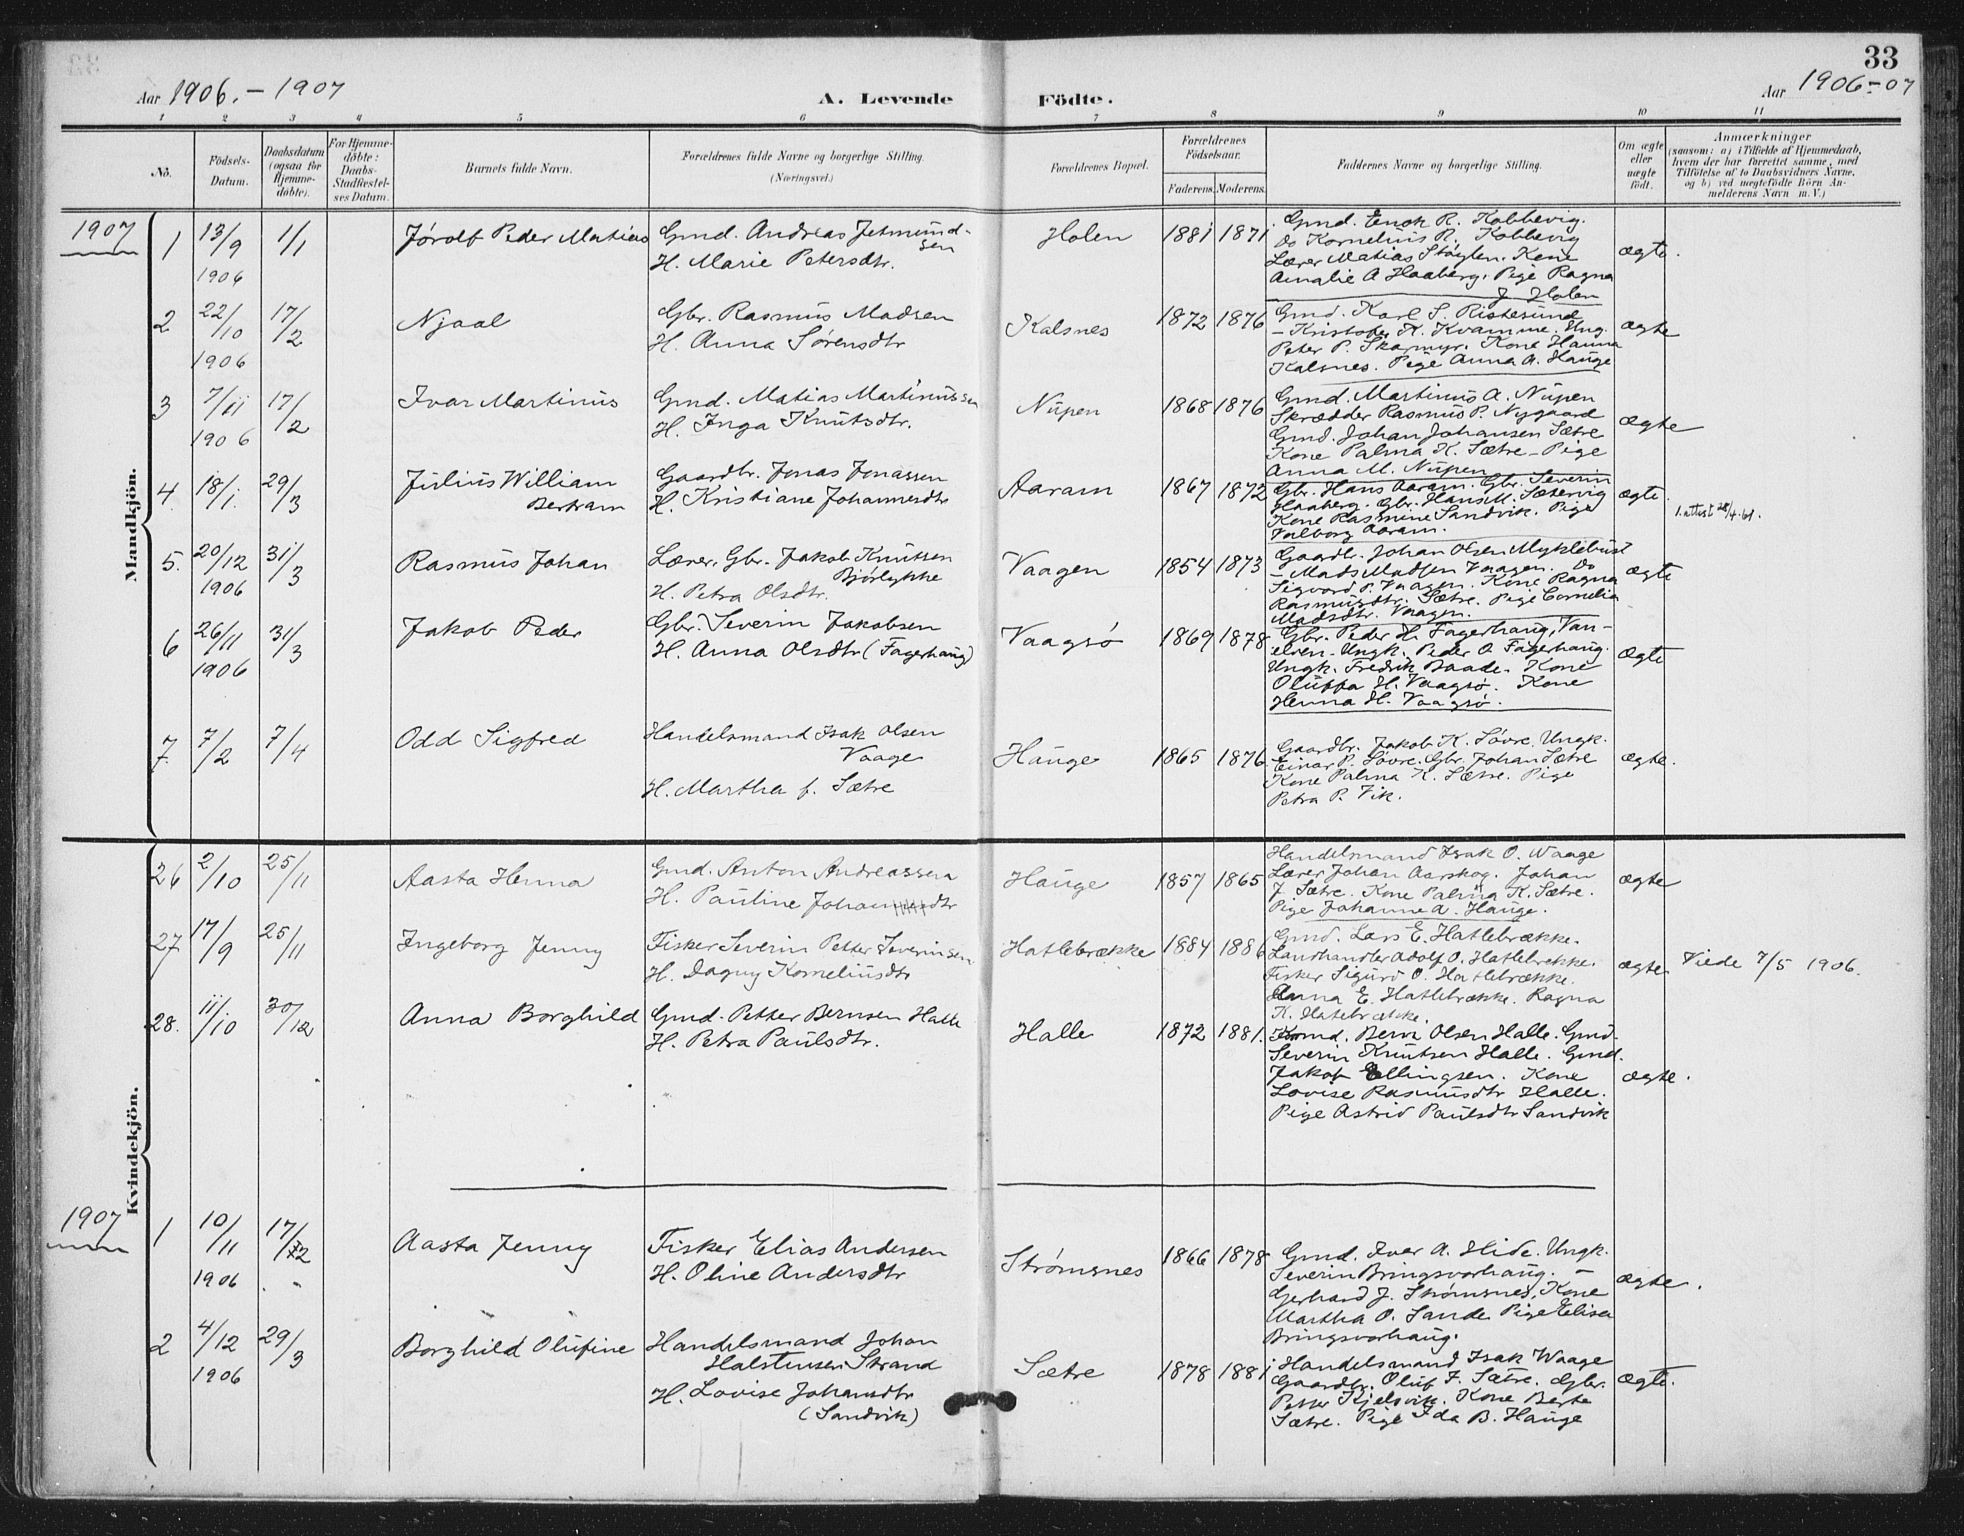 33
Aar 1906. - 1907
A. Levende Födte.
Aar 1906-07
1 2 3 4 5 6 7 8 9 10 11
No.
Födsels-
Datum.
Daabsdatum
(ogsaa for
Hjemme-
døbte).
For Hjemme-
døbte:
Daabs-
Stadfæstel-
ses Datum.
Barnets fulde Navn.
Forældrenes fulde Navne og borgerlige Stilling.
(Næringsvei.)
Forældrenes Bopæl.
Forældrenes
Födselsaar.
Faderens. Moderens.
Faddernes Navne og borgerlige Stilling.
Om ægte
eller
uægte
födt.
Anmærkninger
(saasom: a) i Tilfælde af Hjemmedaab,
hvem der har forrettet samme, med
Tilföielse af to Daabsvidners Navne,
og b) ved uægtefödte Börn An-
melderens Navn m. V.)
Mandkjön.
1907
1 13/9 1906 1/1 Jørolf Peder Matias
Gmd. Andreas Jetmund-
sen
H. Marie Petersdtr.
Holen 1881 1871
Gmd. Enok R. Kobbevig.
Do Kornelius R. Kobbevig
Lærer Matias Støylen. Kone
Amalie A Haaberg. Pige Ragna
J. Holen
ægte.
2 22/10 1906 17/2 Njaal
Gbr. Rasmus Madsen
H. Anna Sørensdtr
Kalsnes 1872 1876
Gmd. Karl S. Ristesund
- Kristofer K. Kvamme. Ung.
Peter P. Skarmyr. Kone Hanna
Kalsnes. Pige Anna A. Hauge
ægte
3 7/11 1906 17/2 Ivar Martinus
Gmd. Matias Martinussen
H. Inga Knutsdtr.
Nupen 1868 1876
Gmd. Martinus A. Nupen
Skrædder Rasmus P. Nygaard
Gmd. Johan Johansen Sætre
Kone Palma K. Sætre - Pige
Anna M. Nupen
ægte
4. 18/1. 29/3 Julius William
Bertram
Gaardbr. Jonas Jonassen
H. Kristiane Johannesdtr
Aaram 1867 1872
Gbr. Hans Aaram. Gbr. Severin
Haaberg. Gbr. Hans M. Sætervig
Kone Rasmine Sandvik. Pige
Valborg Aaram.
ægte.
1. attest 28/4-61.
5. 20/12 1906 31/3 Rasmus Johan
Lærer, Gbr. Jakob Knutsen
Bjørlykke
H. Petra Olsdtr.
Vaagen 1854 1873
Gaardbr. Johan Olsen Myklebust
- Mads Madsen Vaagen. Do
Sigvard P. Vaagen. Kone Ragna
Rasmusdtr. Sætre. Pige Cornelia
Madsdtr. Vaagen.
ægte
6 26/11 1906 31/3 Jakob Peder
Gbr. Severin Jakobsen
H. Anna Olsdtr (Fagerhaug)
Vaagsø 1869 1878
Gbr. Peder H. Fagerhaug, Van-
elven - Ungk. Peder O. Fagerhaug.
Ungk. Fredrik Baade. Kone
Oluffa H. Vaagsø. Kone
Henna H. Vaagsø.
ægte
7. 7/2 7/4 Odd Sigfred
Handelsmand Isak Olsen
Vaage
H. Martha f. Sætre
Hauge 1865 1876
Gaardbr. Jakob K. Søvre. Ungk.
Einar P. Søvre. Gbr. Johan Sætre
Kone Palma K. Sætre. Pige
Petra P. Vik.
ægte.
Kvindekjön.
26 2/10 25/11 Aasta Henna
Gmd. Anton Andreassen
H. Pauline Johannesdtr
Hauge 1857 1865
Handelsmand Isak O. Waage
Lærer Johan Aarskog. Johan
J. Sætre. Kone Palma K. Sætre.
Pige Johanne A. Hauge.
ægte
27 17/9 25/11 Ingeborg Jenny
Fisker Severin Petter Severinsen
H. Dagny Korneliusdtr
Hatlebrække 1884 1886
Gmd. Lars E. Hatlebrække.
Landhandler Adolf O. Hatlebrække.
Fisker Sigurd O. Hatlebrække.
Anna E. Hatlebrække. Ragna
K. Hatebrække.
ægte
Viede 7/5 1906.
28. 11/10 30/12 Anna Borghild
Gmd. Petter Bernsen Halle
H. Petra Paulsdtr.
Halle 1872 1881.
Gmd. Bernt Olsen Halle. Gmd.
Severin Knutsen Halle. Gmd.
Jakob Ellingsen. Kone
Lovise Rasmusdtr Halle.
Pige Astrid Paulsdtr Sandvik
ægte.
1907
1 10/11 1906 17/2 Aasta Jenny
Fisker Elias Andersen
H. Oline Andersdtr
Strømsnes 1866 1878
Gmd. Ivar A. Hide. Ungk.
Severin Bringsvorhaug. -
Gerhard J. Strømsnes, Kone
Martha O. Sande Pige Elisa
Bringsvorhaug.
ægte.
2 4/12 1906 29/3 Borghild Olufine
Handelsmand Johan
Halstensen Strand
H. Lovise Johansdtr
(Sandvik)
Sætre 1878 1881
Handelsmand Isak Waage
Gaardbr. Oluf J. Sætre. Gbr.
Petter Kjelsvik. Kone Berte
Sætre. Pige Ida B. Hauge
ægte.